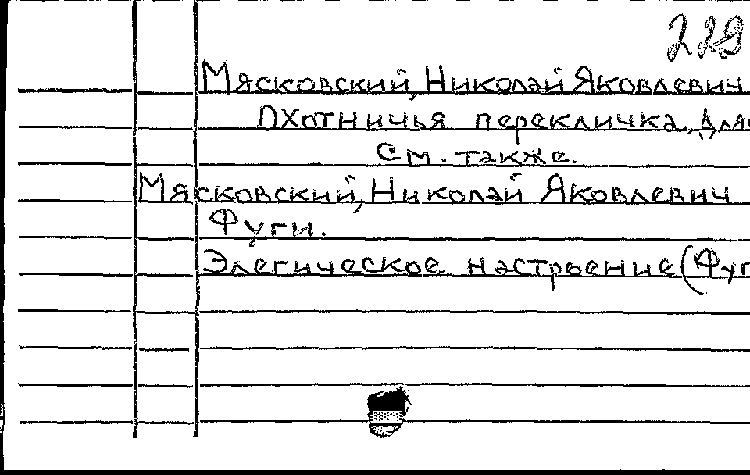 229
Мясковский, Николай Яковлевич
Охотничья перекличка. Для
См. также.
Мясковский, Николай Яковлевич
Фуги.
Элегическое настроение (Фуг